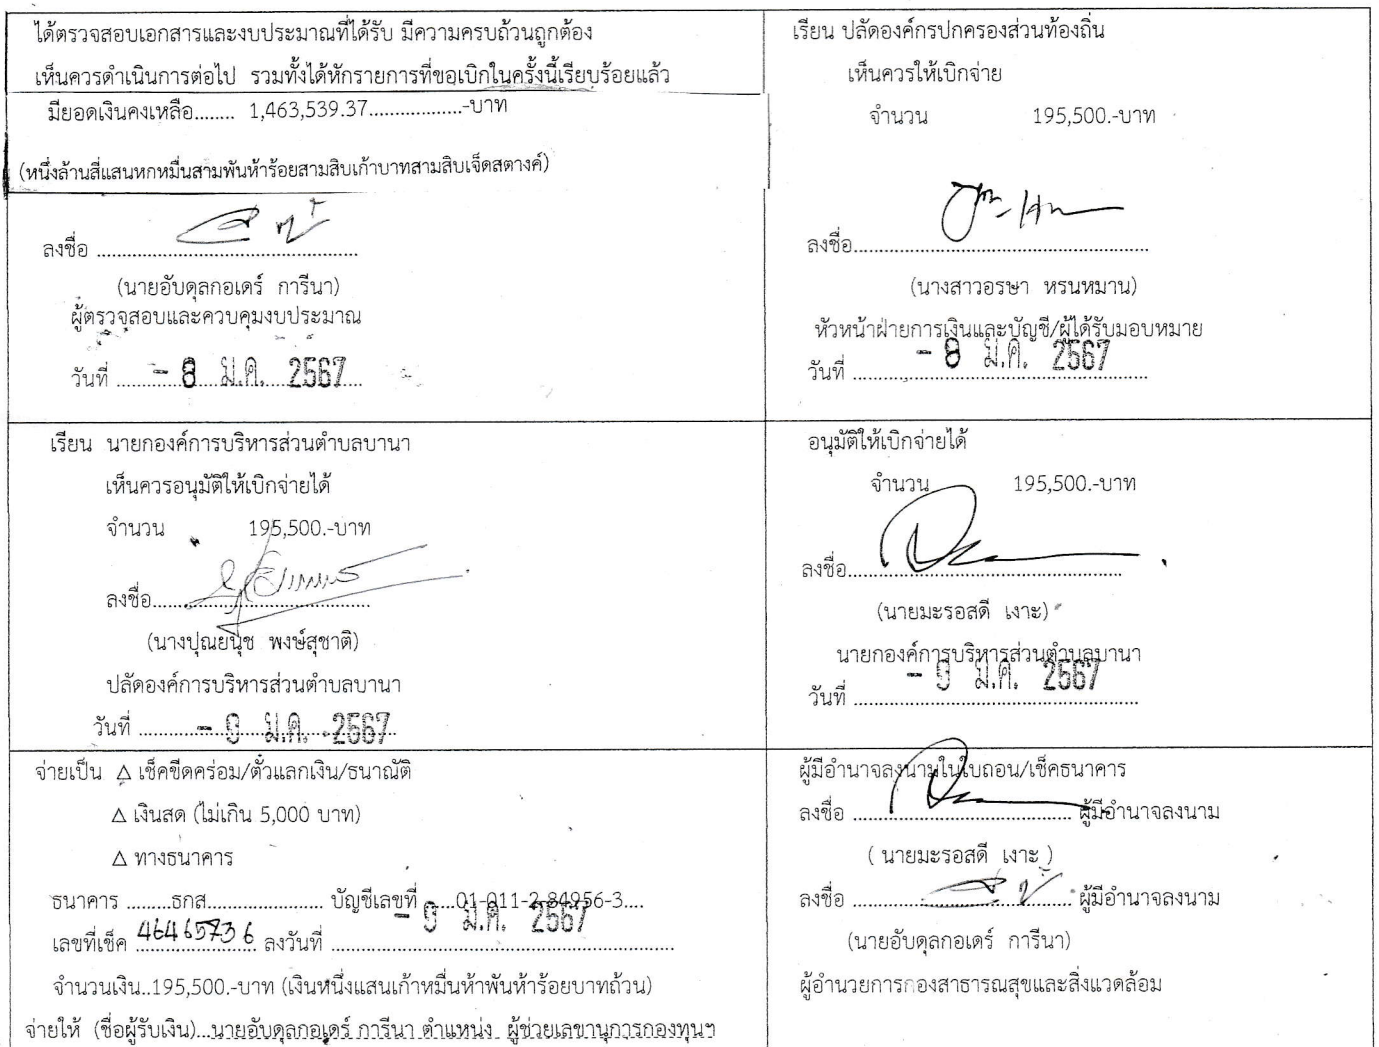 ได้ตรวจสอบเอกสารและงบประมาณที่ได้รับ มีความครบถ้วนถูกต้อง
เห็นควรดำเนินการต่อไป รวมทั้งได้หักรายการที่ขอเบิกในครั้งนี้เรียบร้อยแล้ว
มียอดเงินคงเหลือ........ 1,463,539.37..................-บาท
(หนึ่งล้านสี่แสนหกหมื่นสามพันห้าร้อยสามสิบเก้าบาทสามสิบเจ็ดสตางค์)
ลงชื่อ ........................................
(นายอับดุลกอเดร์ การีนา)
ผู้ตรวจสอบและควบคุมงบประมาณ
วันที่ - 8 ม.ค. 2567
เรียน ปลัดองค์กรปกครองส่วนท้องถิ่น
เห็นควรให้เบิกจ่าย
จำนวน 195,500.-บาท
ลงชื่อ........................................
(นางสาวอรษา หรนหมาน)
หัวหน้าฝ่ายการเงินและบัญชี/ผู้ได้รับมอบหมาย
วันที่ - 8 ม.ค. 2567
เรียน นายกองค์การบริหารส่วนตำบลบานา
เห็นควรอนุมัติให้เบิกจ่ายได้
จำนวน 195,500.-บาท
ลงชื่อ........................................
(นางปุณยนุช พงษ์สุชาติ)
ปลัดองค์การบริหารส่วนตำบลบานา
วันที่ - 9 ม.ค. 2567
อนุมัติให้เบิกจ่ายได้
จำนวน 195,500.-บาท
ลงชื่อ........................................
(นายมะรอสดี เงาะ)
นายกองค์การบริหารส่วนตำบลบานา
วันที่ - 9 ม.ค. 2567
จ่ายเป็น △ เช็คขีดคร่อม/ตั๋วแลกเงิน/ธนาณัติ
△ เงินสด (ไม่เกิน 5,000 บาท)
△ ทางธนาคาร
ธนาคาร .........ธกส....................... บัญชีเลขที่ ......01-011-2-84956-3....
เลขที่เช็ค 46465736 ลงวันที่ - 9 ม.ค. 2567
จำนวนเงิน..195,500.-บาท (เงินหนึ่งแสนเก้าหมื่นห้าพันห้าร้อยบาทถ้วน)
จ่ายให้ (ชื่อผู้รับเงิน)...นายอับดุลกอเดร์ การีนา ตำแหน่ง ผู้ช่วยเลขานุการกองทุนฯ
ผู้มีอำนาจลงนามในใบถอน/เช็คธนาคาร
ลงชื่อ ........................................ ผู้มีอำนาจลงนาม
( นายมะรอสดี เงาะ )
ลงชื่อ ........................................ ผู้มีอำนาจลงนาม
(นายอับดุลกอเดร์ การีนา)
ผู้อำนวยการกองสาธารณสุขและสิ่งแวดล้อม